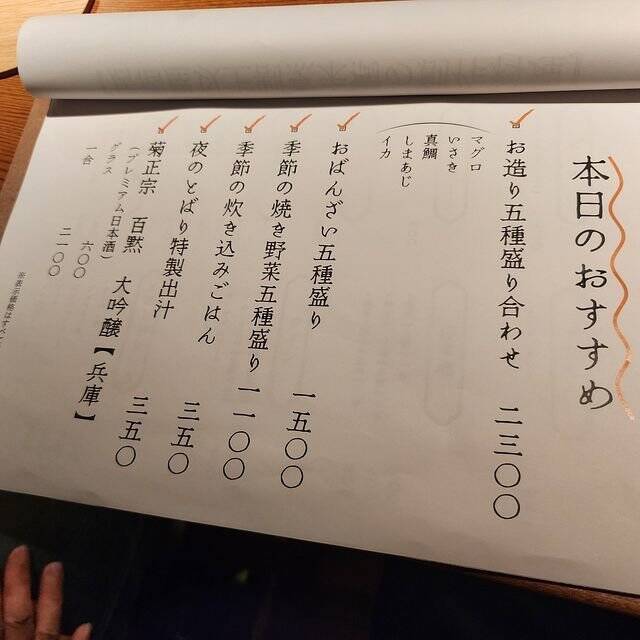 本日のおすすめ
お造り五種盛り合わせ 二三〇〇
マグロ
いさき
真鯛
しまあじ
イカ
おばんざい五種盛り 一五〇〇
季節の焼き野菜五種盛り 一一〇〇
季節の炊き込みごはん 三五〇
夜のとばり特製出汁 三五〇
菊正宗 百黙 大吟醸【兵庫】
(プレミアム日本酒)
グラス 六〇〇
一合 二一〇〇
※表示価格はすべ